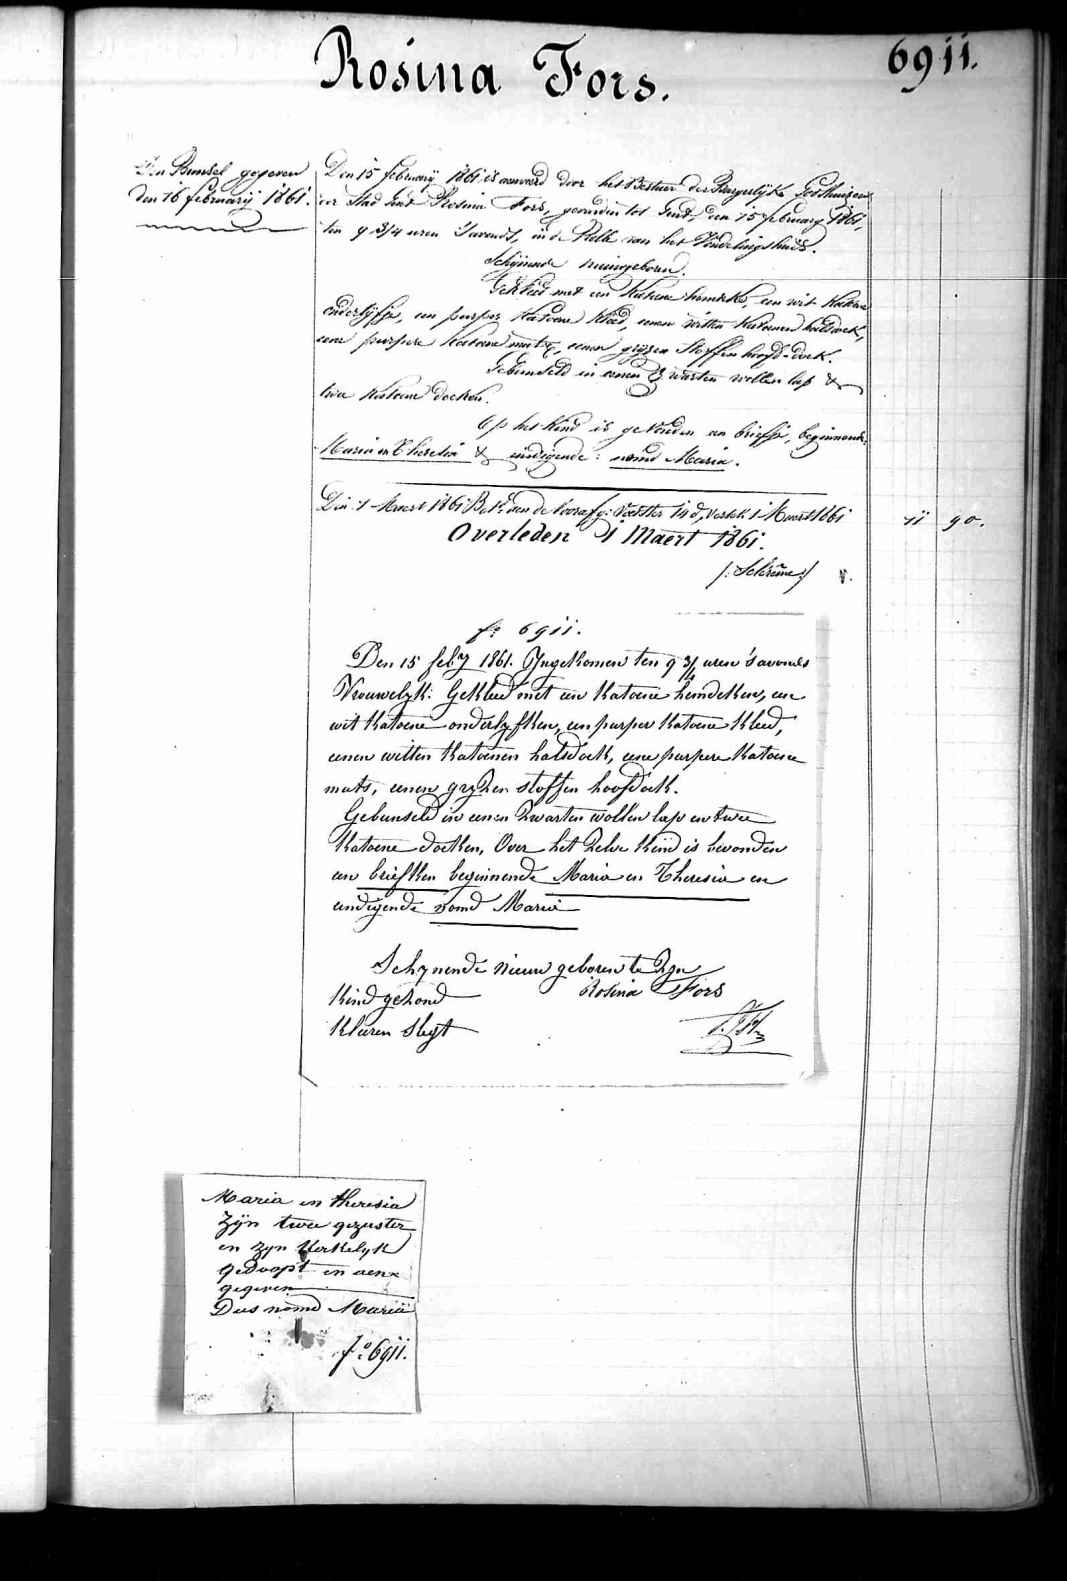 Rosina Fors.
6911.
Den Bunsel gegeven
den 16 februarij 1861.
Den 15 februarij 1861 is aenveerd door het Bestuer der Burgerlijke Godshuizen
der Stad Gent Rosina Fors, gevonden tot Gent, den 15 februarij 1861,
ten 9 3/4 uren 's avonds, in de Rolle van het Vondelingshuis.
Schijnende nieuwgeboren.
Gekleed met een katoene hemdeke, een wit katoene
onderlijfje, een purper katoene kleed, eenen witten katoenen halsdoek,
eene purpere katoene muts, eenen grijzen stoffen hoofd-doek.
Gebunseld in eenen zwarten wollen lap &
twee katoene doeken.
Op het kind is gevonden een briefje, beginnende:
Maria en Theresia & eindigende: nomd Maria.
Den 1 Maert 1861 Bet. aen de Voorafg: Voedster 14 d, verlek. 1 Maert 1861
11 90.
Overleden 1 Maert 1861.
fo 6911.
Den 15 feby 1861. Ingekomen ten 9 3/4 uren 's avonds
Vrouwelyk: Gekleed met een katoene hemdeken, een
wit katoene onderlyfken, een purper katoene kleed,
eenen witten katoenen halsdoek, eene purpere katoene
muts, eenen gryzen stoffen hoofdoek.
Gebunseld in eenen zwarten wollen lap en twee
katoene doeken, Over het zelve kind is bevonden
een briefken beginnende Maria en Theresia en
eindigende nomd Maria
Schynende nieuw geboren te zyn
kind gezond Rosina Fors
kleeren slegt
Maria en theresia
zijn twee gezuster
en zyn kerkelyk
gedoopt en aen
gegeven
Dus nomd Maria
fo 6911.